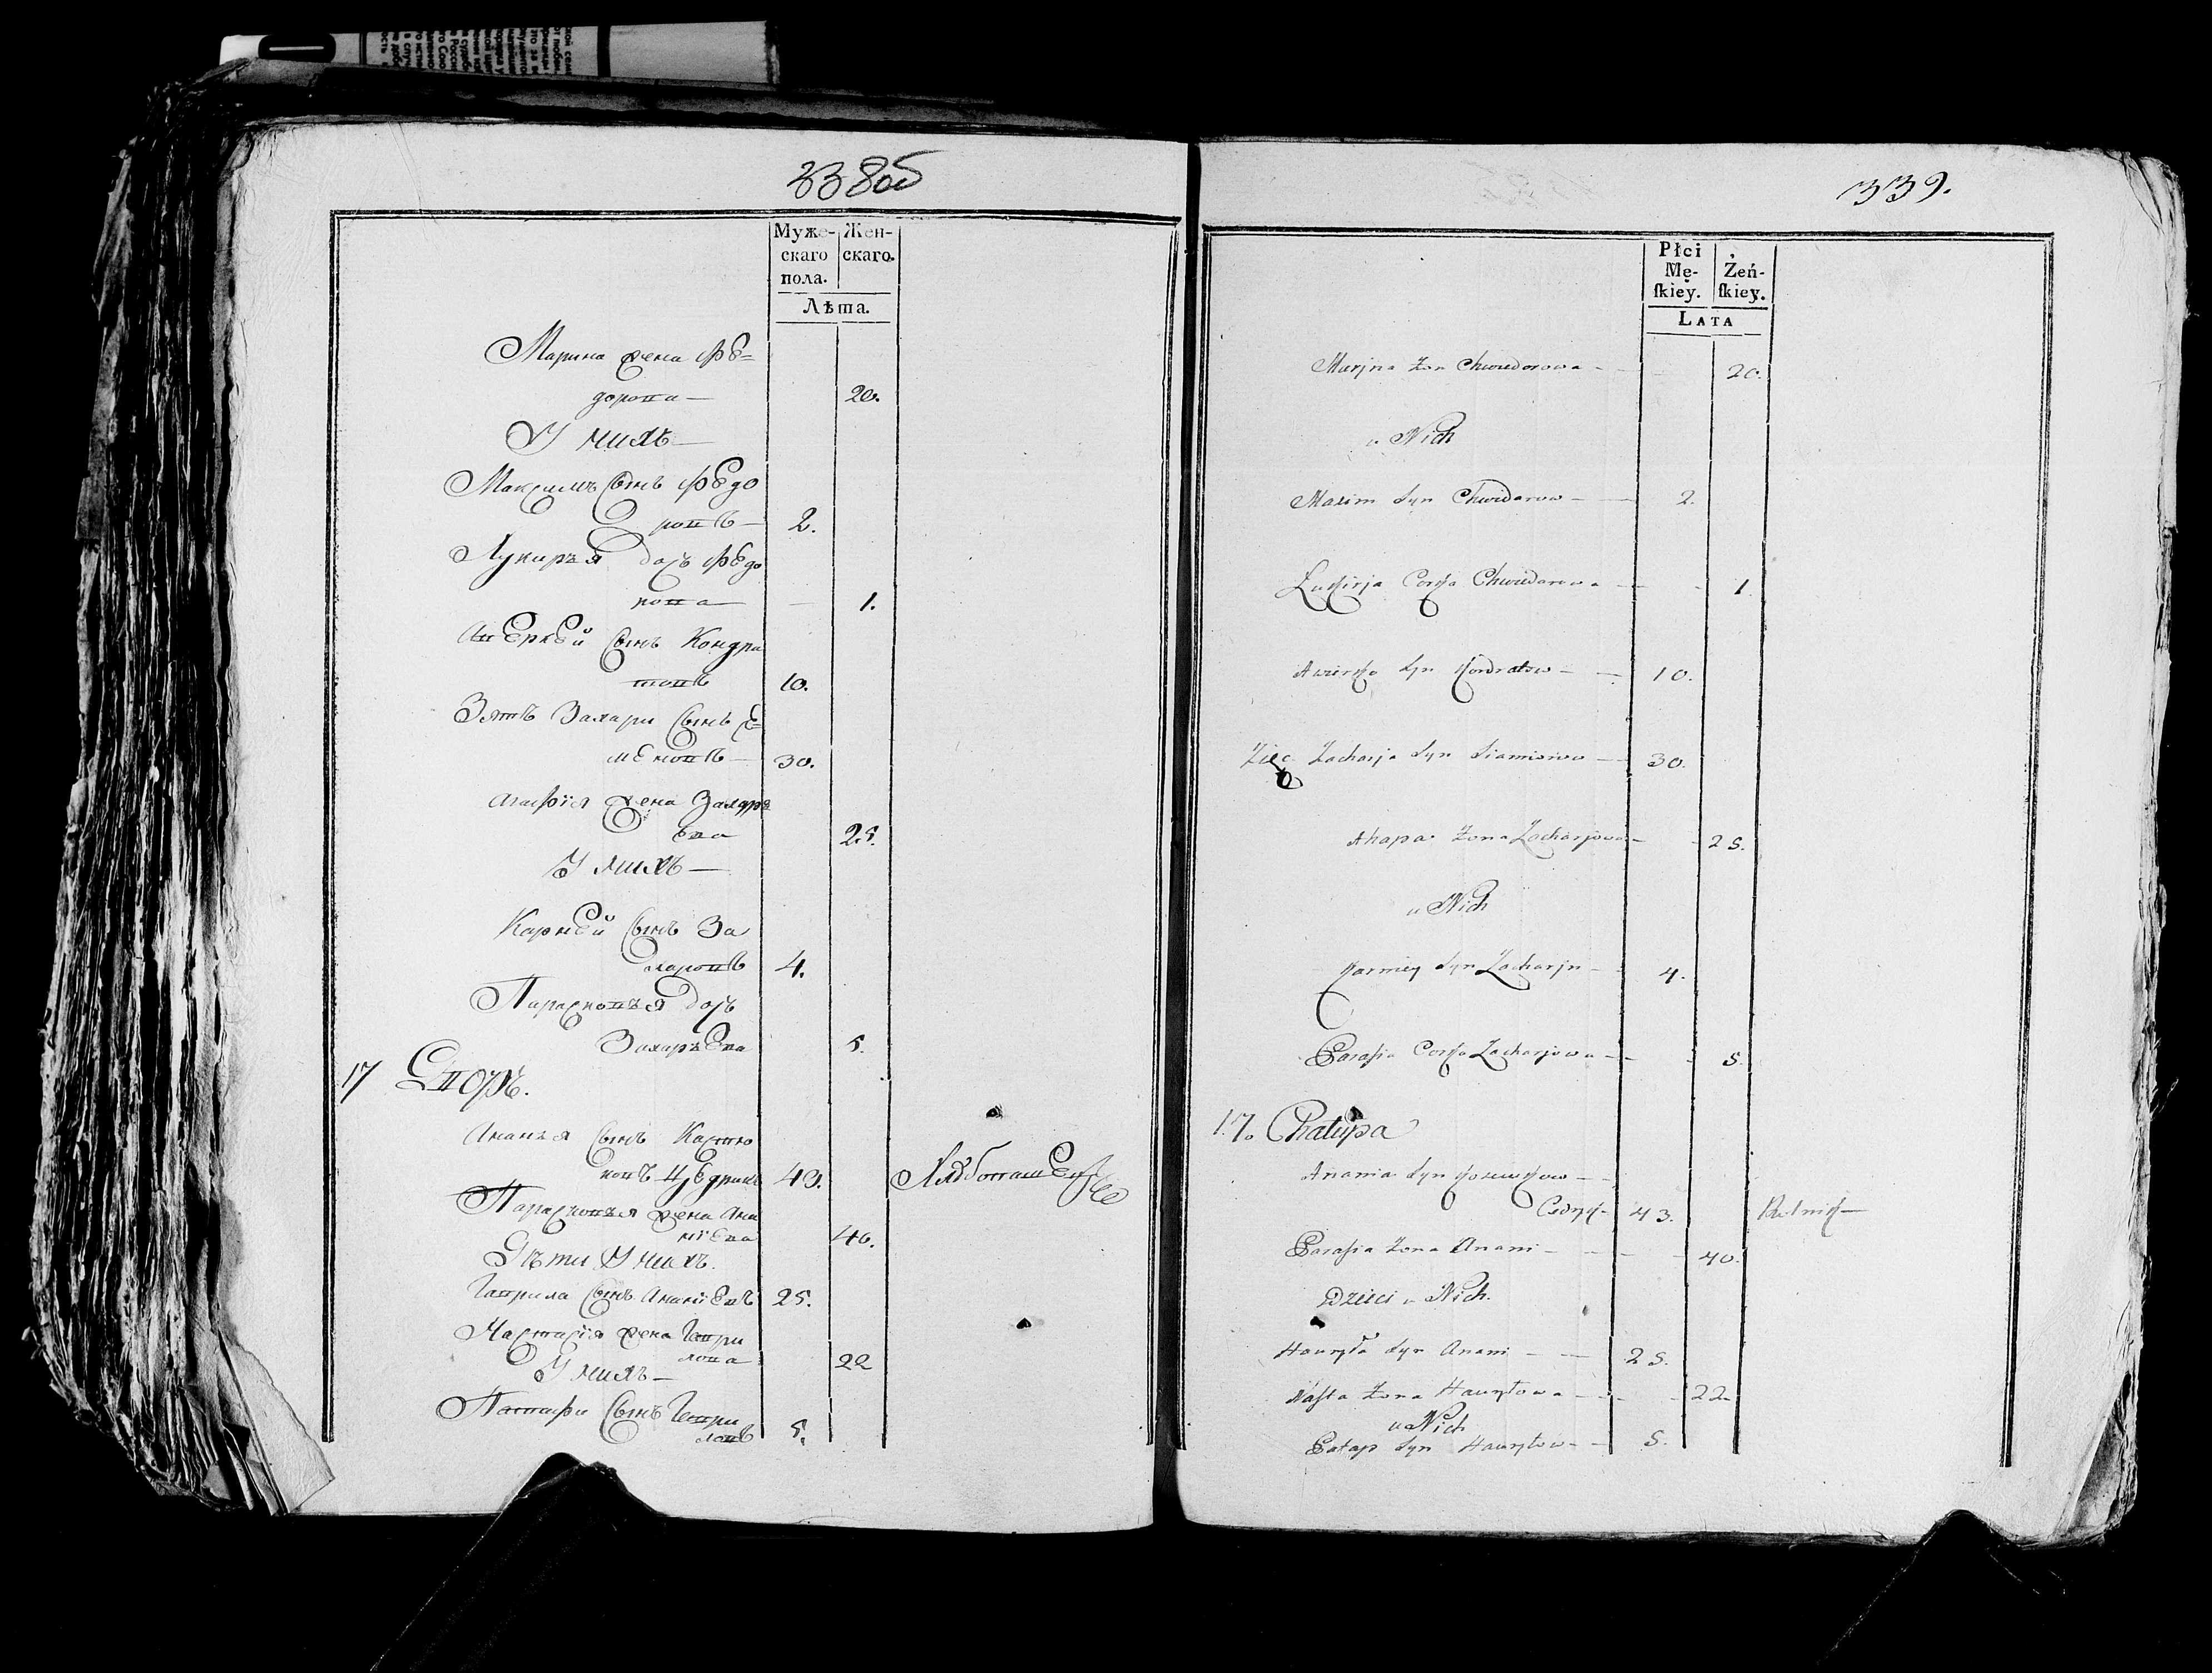 338об
Муже-
скаго
пола.
Жен-
скаго.
Лѣта.
Марина жена Фе=
дорова — 20.
У нихъ —
Максимъ сынъ Федо
ровъ — 2.
Лукирья дочъ Федо
рова — 1.
Аверкей сынъ Кондра
товъ 10.
Зять Захари сынъ Се=
меновъ — 30.
Агафія жена Захарь
ева 25.
У нихъ —
Карней сынъ За
харовъ 4.
Парасковья дочъ
Захарьева 5.
17 Дворъ.
Ананья сынъ
43.
Парасковья жена Ана
ніева 40.
Дѣти У нихъ.
Гаврила сынъ Ананіевъ 25.
Настасія жена Гаври
лова 22
У нихъ —
Патапи сынъ Гаври
ловъ 5.
339.
Płci
Mę-
ſkiey.
Żeń-
ſkiey.
LATA
Marjna Żon Chwiedorowa - 20.
u Nich
Maxim Syn Chwidorow - 2.
Łukirja Corka Chwiedorowa - 1
Awierko Syn Kondratow - 10.
Zięc Zacharja Syn Siamionow - 30.
Ahapa Żona Zacharjowa - 25.
u Nich
Karniey Syn Zacharjn - 4.
Parasia Corka Zacharjowa - 5
17. Chałupa
Anania Syn
43. Rolnik -
Parasia Żona Anani - 40.
Dzieci u Nich.
Hawryła Syn Anani - 25.
Nasta Żona Hawryłowa - 22
u Nich
Patap Syn Hawryłow - 5.